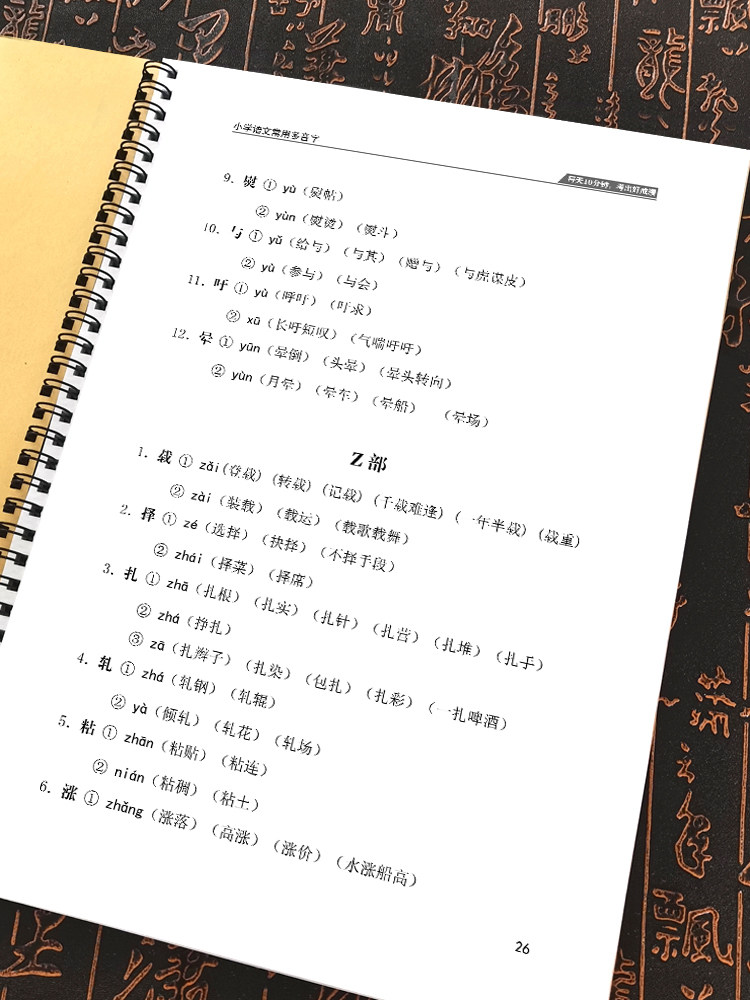 小学语文常用多音字
每天10分钟，考出好成绩
9. 熨 ① yù（熨帖）
② yùn（熨烫）（熨斗）
10. 与 ① yǔ（给与）（与其）（赠与）（与虎谋皮）
② yù（参与）（与会）
11. 吁 ① yù（呼吁）（吁求）
② xū（长吁短叹）（气喘吁吁）
12. 晕 ① yūn（晕倒）（头晕）（晕头转向）
② yùn（月晕）（晕车）（晕船）（晕场）
Z 部
1. 载 ① zǎi(登载)（转载）（记载）（千载难逢）（一年半载）（载重）
② zài（装载）（载运）（载歌载舞）
2. 择 ① zé（选择）（抉择）（不择手段）
② zhái（择菜）（择席）
3. 扎 ① zhā（扎根）（扎实）（扎针）（扎营）（扎堆）（扎手）
② zhá（挣扎）
③ zā（扎辫子）（扎染）（包扎）（扎彩）（一扎啤酒）
4. 轧 ① zhá（轧钢）（轧辊）
② yà（倾轧）（轧花）（轧场）
5. 粘 ① zhān（粘贴）（粘连）
② nián（粘稠）（粘土）
6. 涨 ① zhǎng（涨落）（高涨）（涨价）（水涨船高）
26
龍
飄